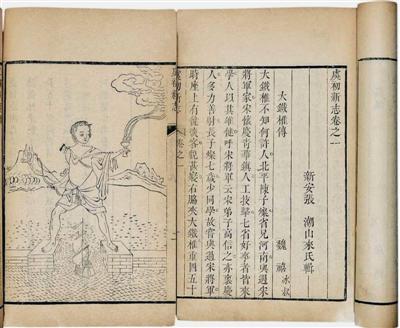 虞初新志卷之一
新安張 潮山來氏輯
大鐵椎傳
魏 禧 冰叔
大鐵椎不知何許人北平陳子燦省兄河南與遇宋
將軍家宋懷慶青華鎮人工技擊七省好事者皆來
學人以其雄健呼宋將軍云宋弟子高信之亦懷慶
人多力善射長子燦七歲少同學故嘗與過宋將軍
時座上有健啖客貌甚寢右脇夾大鐵椎重四五十
虞初新志
卷之一